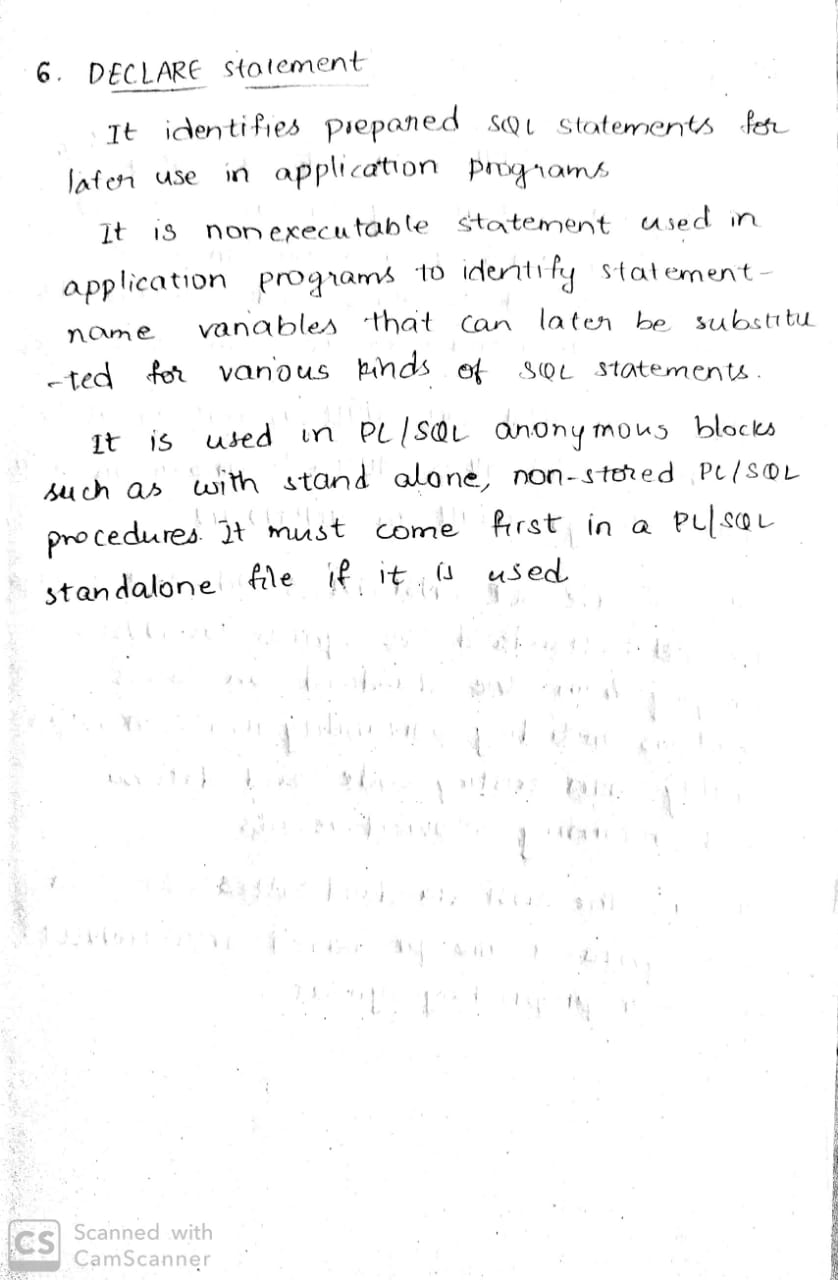 6. DECLARE statement
It identifies prepared SQL statements for
later use in application programs
It is nonexecutable statement used in
application programs to identify statement-
name variables that can later be substitu
-ted for various kinds of SQL statements.
It is used in PL/SQL anonymous blocks
such as with stand alone, non-stored PL/SQL
procedures. It must come first in a PL/SQL
standalone file if it is used
CS Scanned with
CamScanner